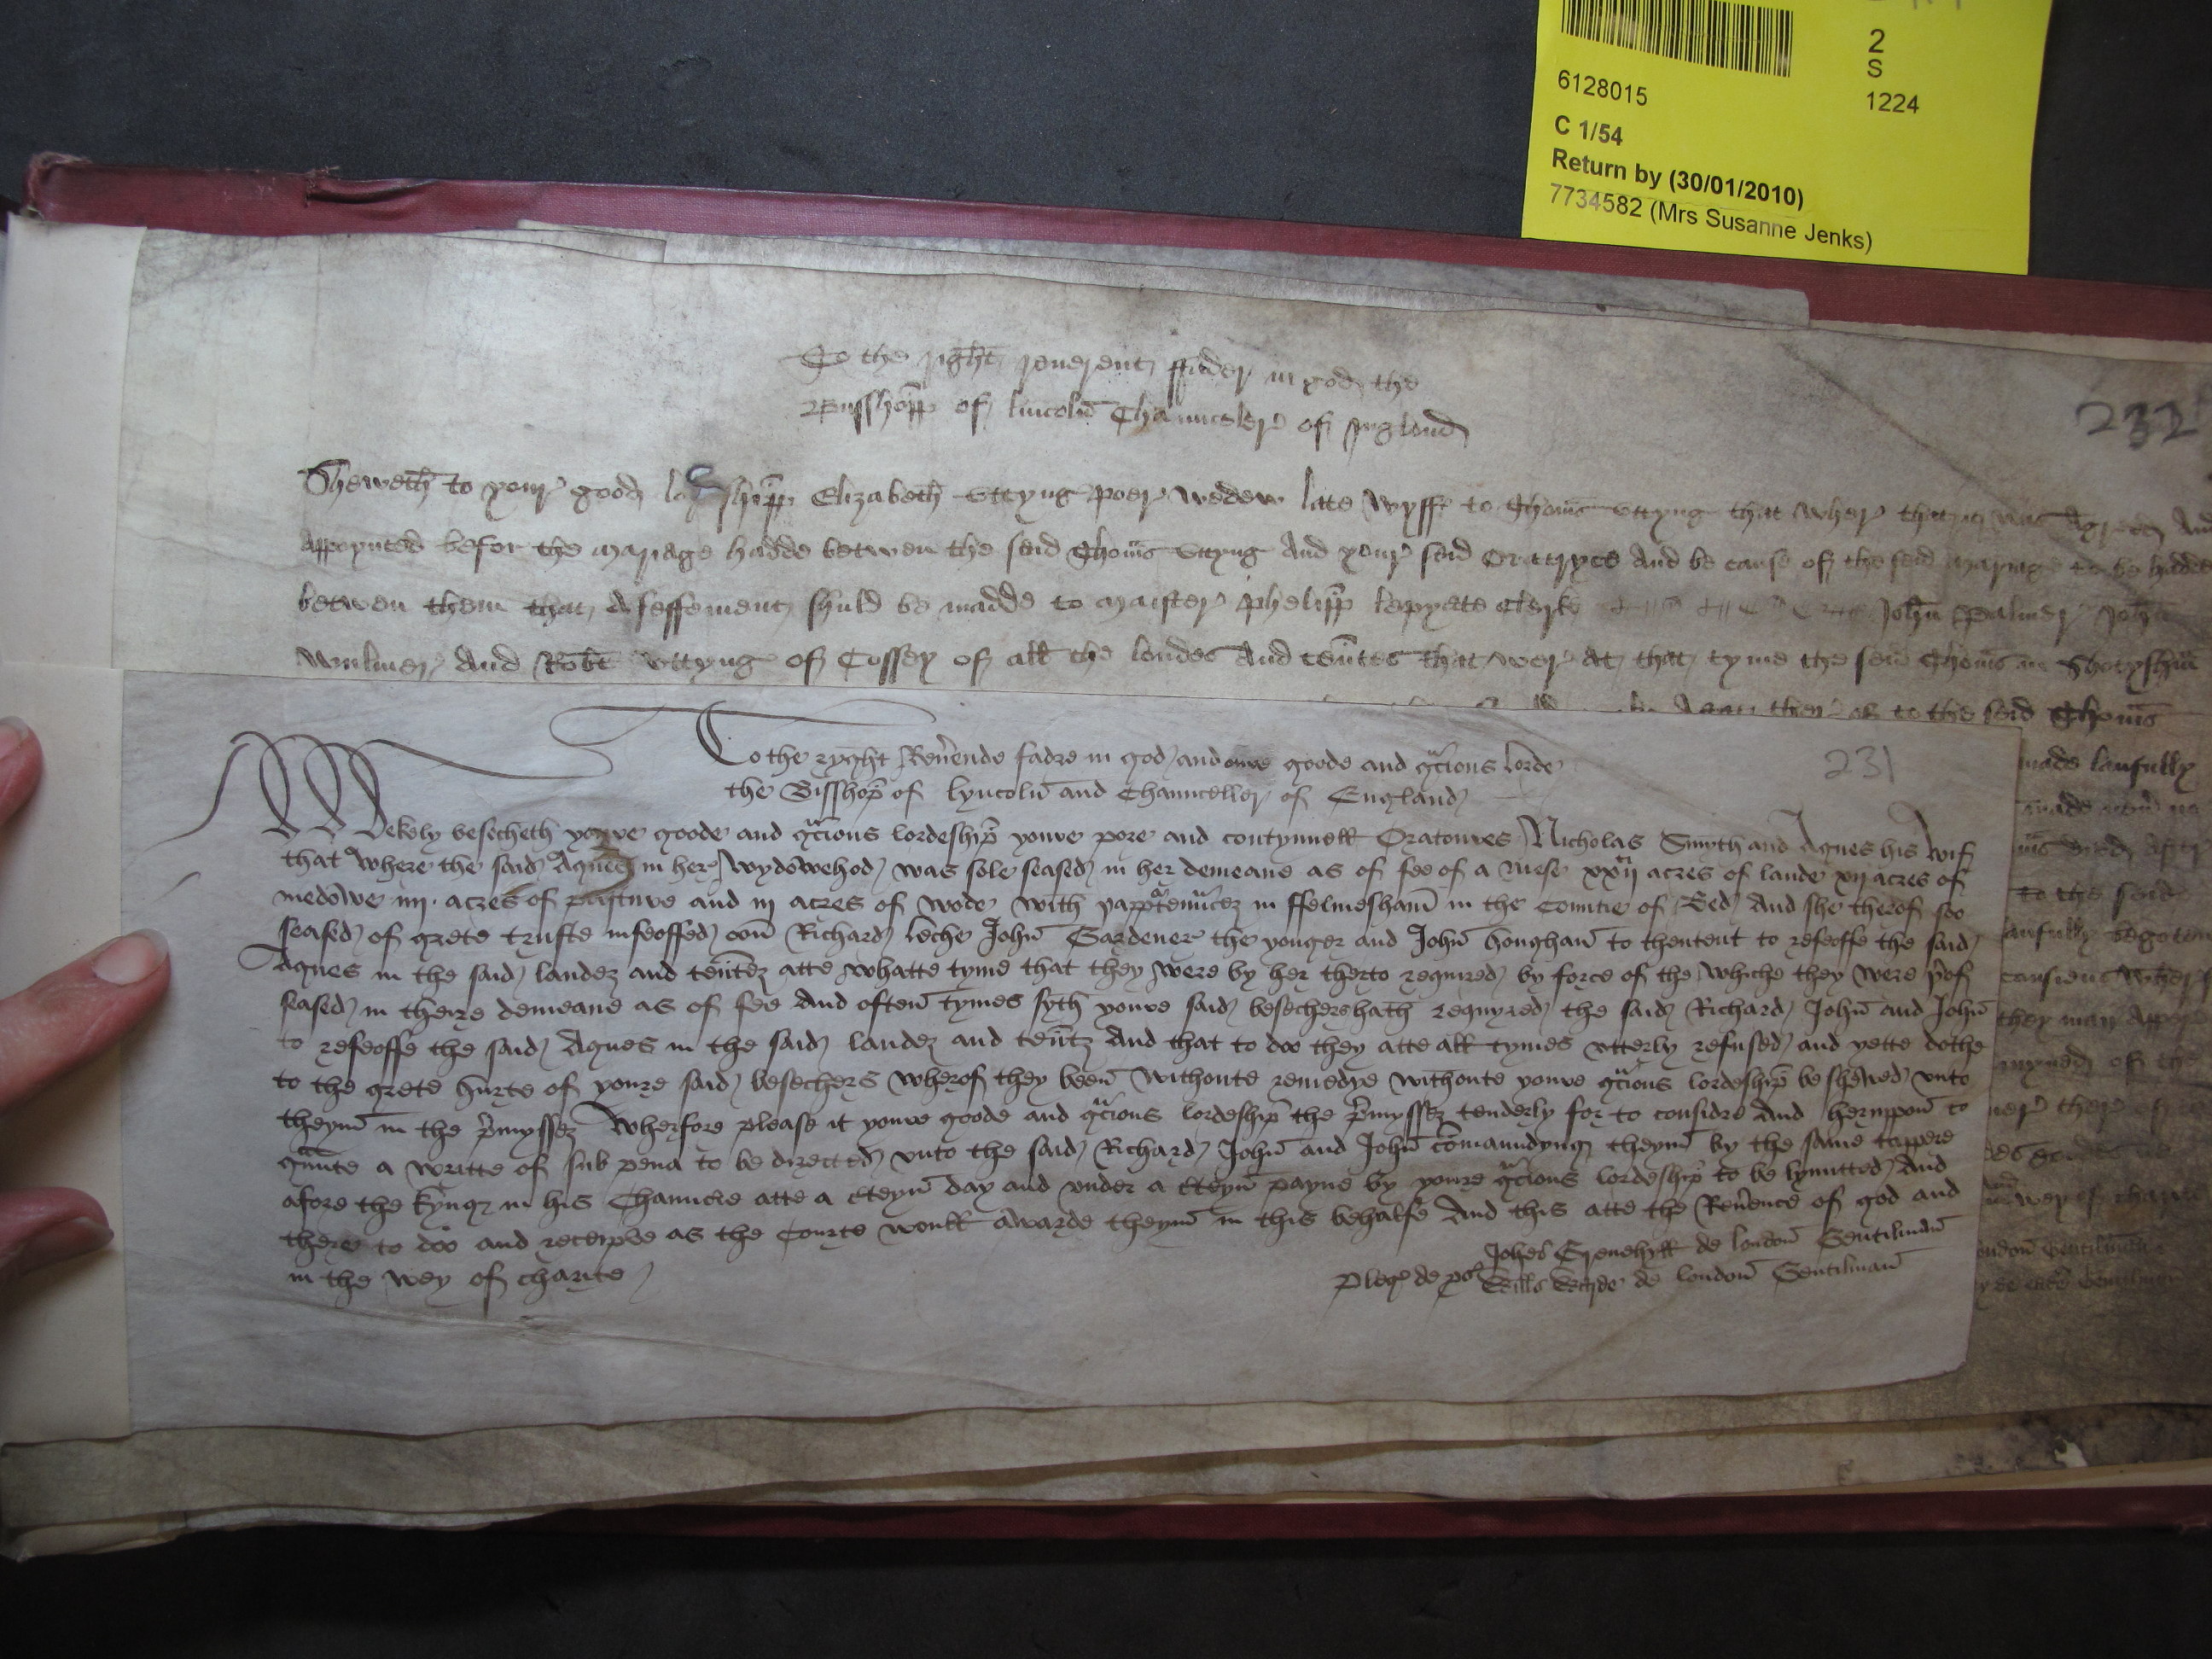 2
S
6128015
1224
C 1/54
Return by (30/01/2010)
7734582 (Mrs Susanne Jenks)
To the right reuerent ffader in god the
Busshopp of lincoln Chaunceler of Inglond
232
Sheweth to your good lordshipp Elizabeth Uttyng poer wedew late wyff to Thoms Uttyng that wher that it was Agreed And
Appoynted befor the mariage hadde betwen the seid Thoms Uttyng And your seid Oratryce And be cause of the seid mariage to be hadde
betwen them that A feffement shuld be madde to maister Phelipp lepyate Clerke John Palmer John
Wulmer And Robt Uttyng of Cossey of all the londes And tentes that wer At that tyme the seid Thoms in Shotysham
ther of to the seid Thoms
made laufully
to the seid
laufully begoten
they may
of the
ther of
To the ryght Reuende fadre in god and oure goode and gcious lorde
the Bisshop of lyncoln and Chaunceller of England
231
Mekely besecheth youre goode and gcious lordeship youre pore and contynuell Oratoures Nicholas Smyth and Agnes his wif
that where the said Agnes in her wydowehod was sole seased in her demeane as of fee of a mese xxij acres of lande xij acres of
medowe iiij acres of pasture and iij acres of wode with thappurtenuncez in ffelmesham in the Countie of Bed And she therof soo
seased of grete truste infeoffed oon Richard leche John Gardener the yonger and John Houghan to thentent to refeoffe the said
Agnes in the said landez and tentez atte whatte tyme that they were by her therto required by force of the whiche they were pof
seased in theire demeane as of fee And often tymes syth youre said besechers hath requyred the said Richard John and John
to refeoffe the said Agnes in the said landez and tentz And that to doo they atte all tymes utterly refused and yette dothe
to the grete hurte of youre said besechers wherof they been withoute remedye withoute youre gcious lordeship be shewed unto
theym in the pmyssez Wherfore please it youre goode and gcious lordeship the pmyssez tenderly for to considre And heruppon to
gunte a writte of sub pena to be directed unto the said Richard John and John comaundyng theym by the same tappere
afore the kyng in his Chauncie atte a cteyn day and under a cteyn payne by youre gcious lordeship to be lymitted And
there to doo and receipve as the Courte woull awarde theym in this behalfe And this atte the Reuence of god and
in the wey of charite
Pleg de ps Johes Grenehyll de london Gentilman
Wills de london Gentilman